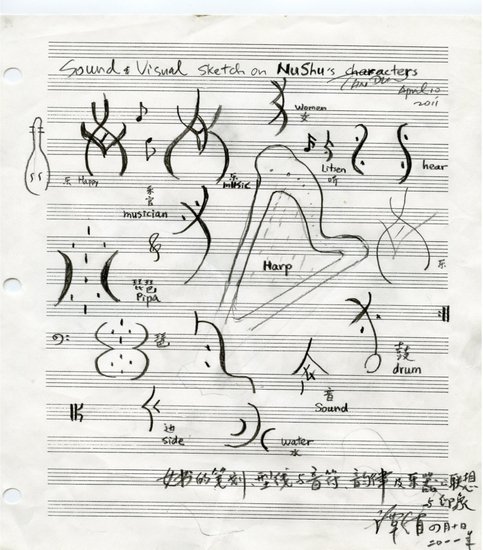 Sound & Visual sketch on NuShu's characters
Tan Dun
April 10
2011
Women
女
乐 Happy
乐
music
听
hear
乐官
musician
Harp
乐
琵琶
Pipa
琶
鼓
drum
音
Sound
边
side
water
水
女书的笔划、型线与音符、韵律及乐器之联想
与印象
谭盾 四月十日
二〇一一年